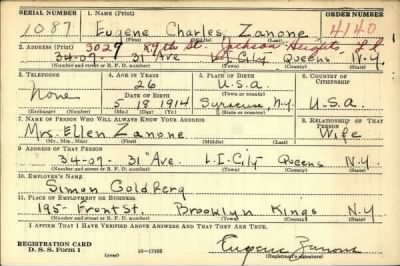 SERIAL NUMBER 1. NAME (Print) ORDER NUMBER
1087 Eugene Charles Zanone 4140
2. ADDRESS (Print) 3027 87th St. Jackson Heights, L.I.
34-07- 31 Ave L.I. City Queens N.Y.
(Number and street or R. F. D. number) (Town) (County) (State)
3. TELEPHONE 4. AGE IN YEARS 5. PLACE OF BIRTH 6. COUNTRY OF CITIZENSHIP
None 26 U.S.A.
DATE OF BIRTH (Town or county)
5 18 1914 Syracuse, N.Y. U.S.A.
(Exchange) (Number) (Mo.) (Day) (Yr.) (State or country)
7. NAME OF PERSON WHO WILL ALWAYS KNOW YOUR ADDRESS 8. RELATIONSHIP OF THAT PERSON
Mrs. Ellen Zanone Wife
(Mr., Mrs., Miss) (First) (Middle) (Last)
9. ADDRESS OF THAT PERSON
34-07- 31 Ave. L.I. City Queens N.Y.
(Number and street or R. F. D. number) (Town) (County) (State)
10. EMPLOYER'S NAME
Simon Goldberg
11. PLACE OF EMPLOYMENT OR BUSINESS
195- Front St. Brooklyn Kings N.Y
(Number and street or R. F. D. number) (Town) (County) (State)
I AFFIRM THAT I HAVE VERIFIED ABOVE ANSWERS AND THAT THEY ARE TRUE.
REGISTRATION CARD
D. S. S. Form 1 (over) 16-17105 Eugene Zanone
(Registrant's signature)